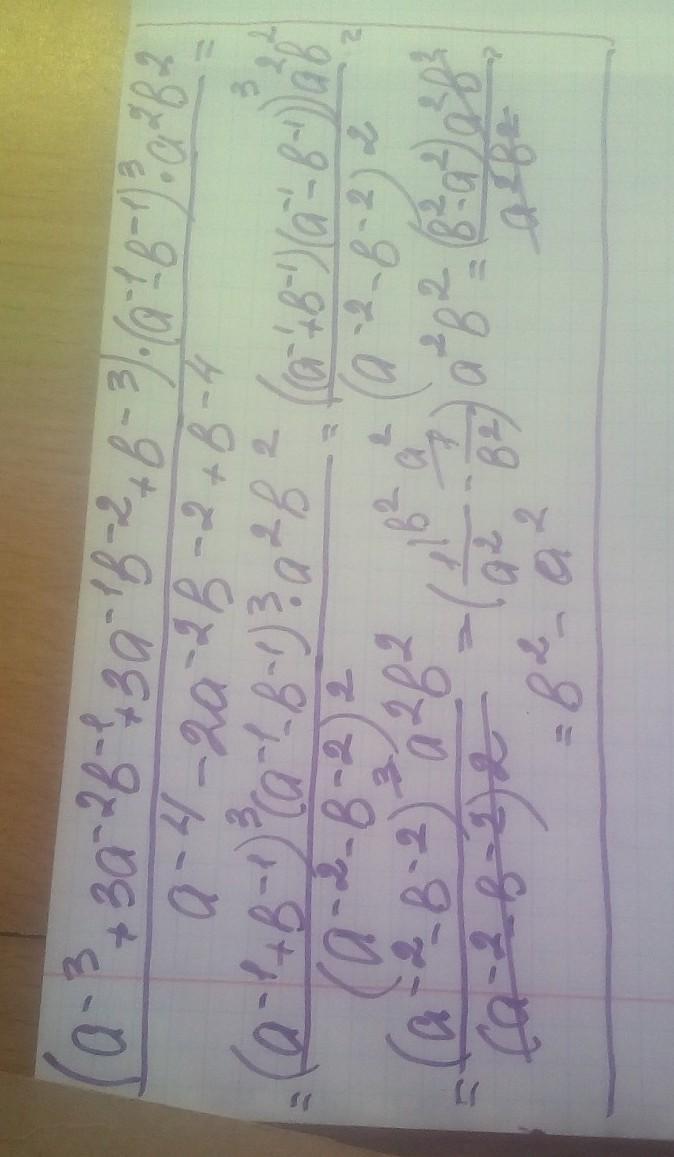 (a⁻³+3a⁻²b⁻¹+3a⁻¹b⁻²+b⁻³)·(a⁻¹-b⁻¹)³·a²b² =
a⁻⁴-2a⁻²b⁻²+b⁻⁴
= (a⁻¹+b⁻¹)³(a⁻¹-b⁻¹)³·a²b² = ((a⁻¹+b⁻¹)(a⁻¹-b⁻¹))³a²b² =
(a⁻²-b⁻²)² (a⁻²-b⁻²)²
= (a⁻²-b⁻²)³ a²b² = (1/a² - 1/b²) a²b² = (b²-a²)a²b² =
(a⁻²-b⁻²)² a²b²
= b²-a²